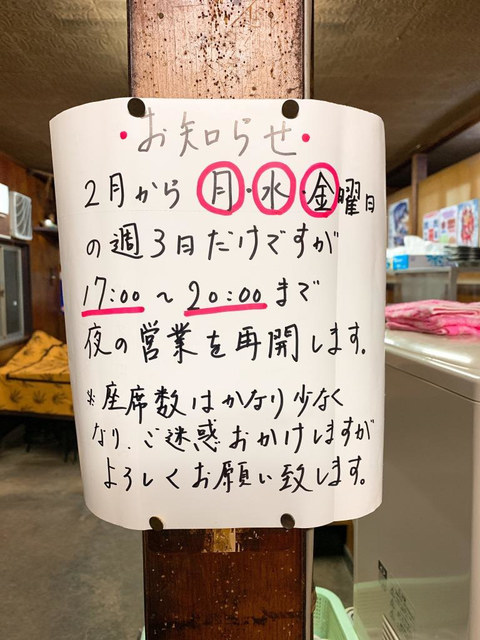 ・お知らせ・
2月から 月・水・金曜日
の週3日だけですが
17:00 〜 20:00 まで
夜の営業を再開します。
※座席数はかなり少なく
なり、ご迷惑おかけしますが
よろしくお願い致します。